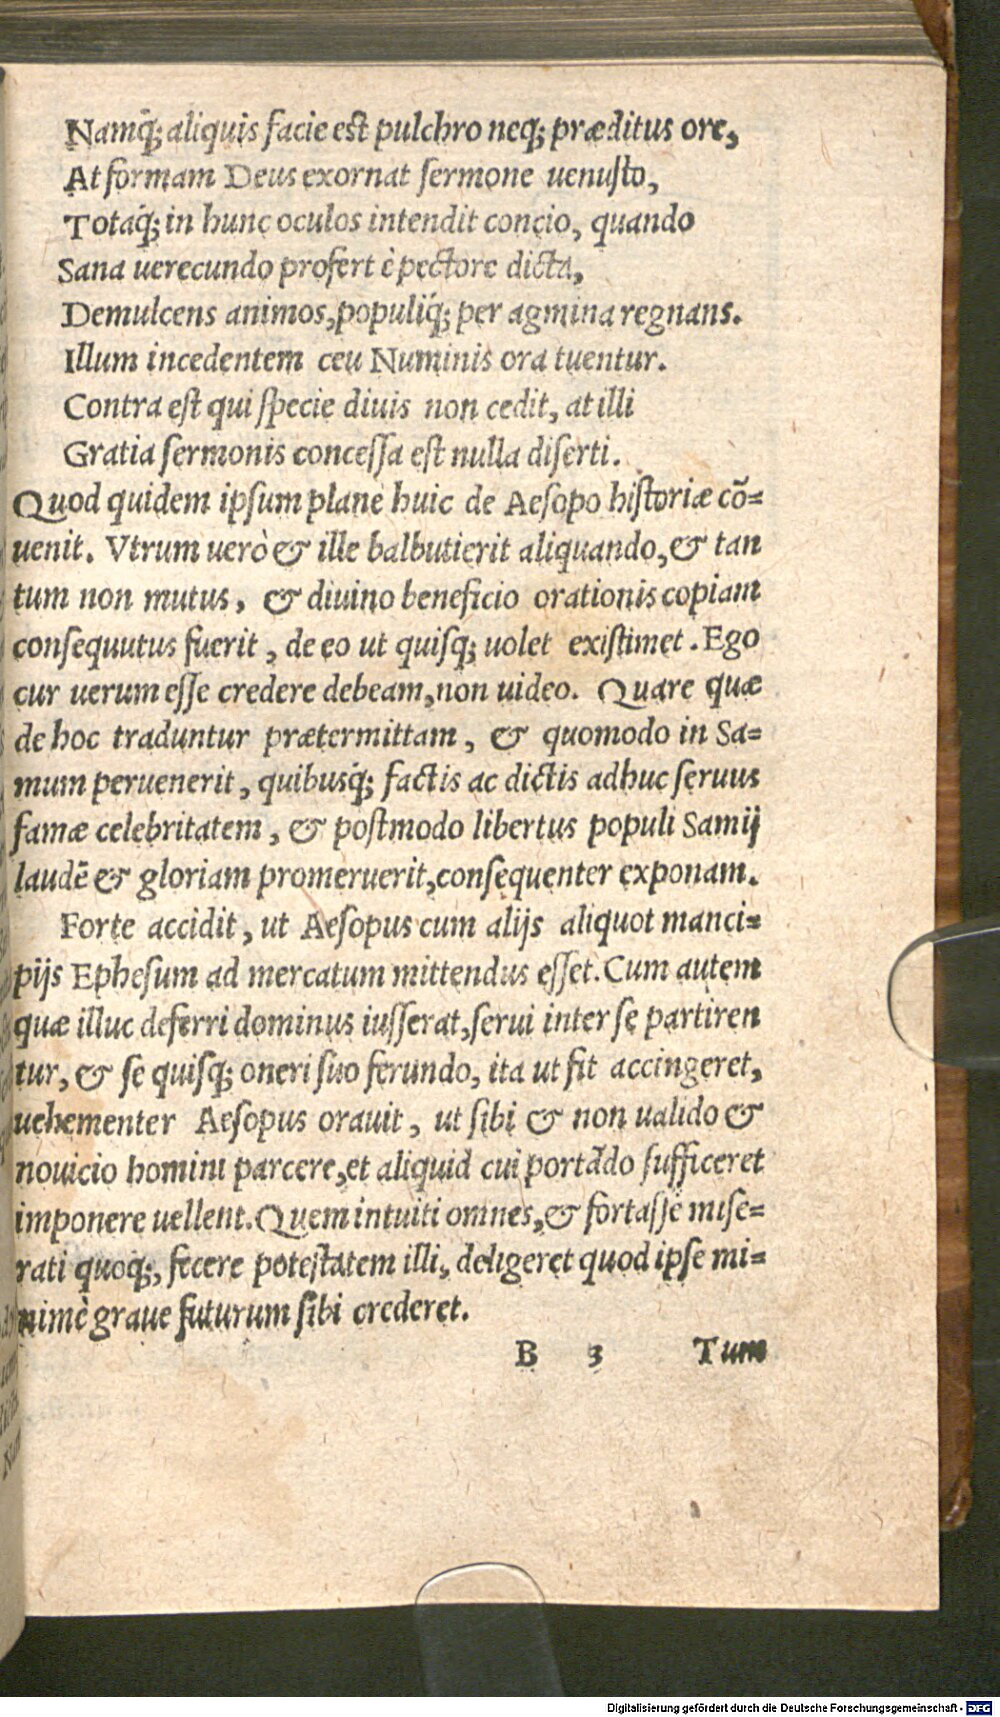 Namq́; aliquis facie est pulchro neq; præditus ore,
At formam Deus exornat sermone uenusto,
Totaq́; in hunc oculos intendit concio, quando
Sana uerecundo profert è pectore dicta,
Demulcens animos, populiq́; per agmina regnans.
Illum incedentem ceu Numinis ora tuentur.
Contra est qui specie diuis non cedit, at illi
Gratia sermonis concessa est nulla diserti.
Quod quidem ipsum planè huic de Aesopo historiæ cō=
uenit. Vtrum uerò & ille balbutierit aliquando, & tan
tum non mutus, & diuino beneficio orationis copiam
consequutus fuerit, de eo ut quisq; uolet existimet. Ego
cur uerum esse credere debeam, non uideo. Quare quæ
de hoc traduntur prætermittam, & quomodo in Sa=
mum peruenerit, quibusq́; factis ac dictis adhuc seruus
famæ celebritatem, & postmodo libertus populi Samij
laudē & gloriam promeruerit, consequenter exponam.
Forte accidit, ut Aesopus cum alijs aliquot manci=
pijs Ephesum ad mercatum mittendus esset. Cum autem
quæ illuc deferri dominus iusserat, serui inter se partiren
tur, & se quisq; oneri suo ferundo, ita ut fit accingeret,
uehementer Aesopus orauit, ut sibi & non ualido &
nouicio homini parcere, et aliquid cui portādo sufficeret
imponere uellent. Quem intuiti omnes, & fortasse mise=
rati quoq;, fecere potestatem illi, deligeret quod ipse mi=
nimè graue futurum sibi crederet.
B 3 Tum
Digitalisierung gefördert durch die Deutsche Forschungsgemeinschaft - DFG